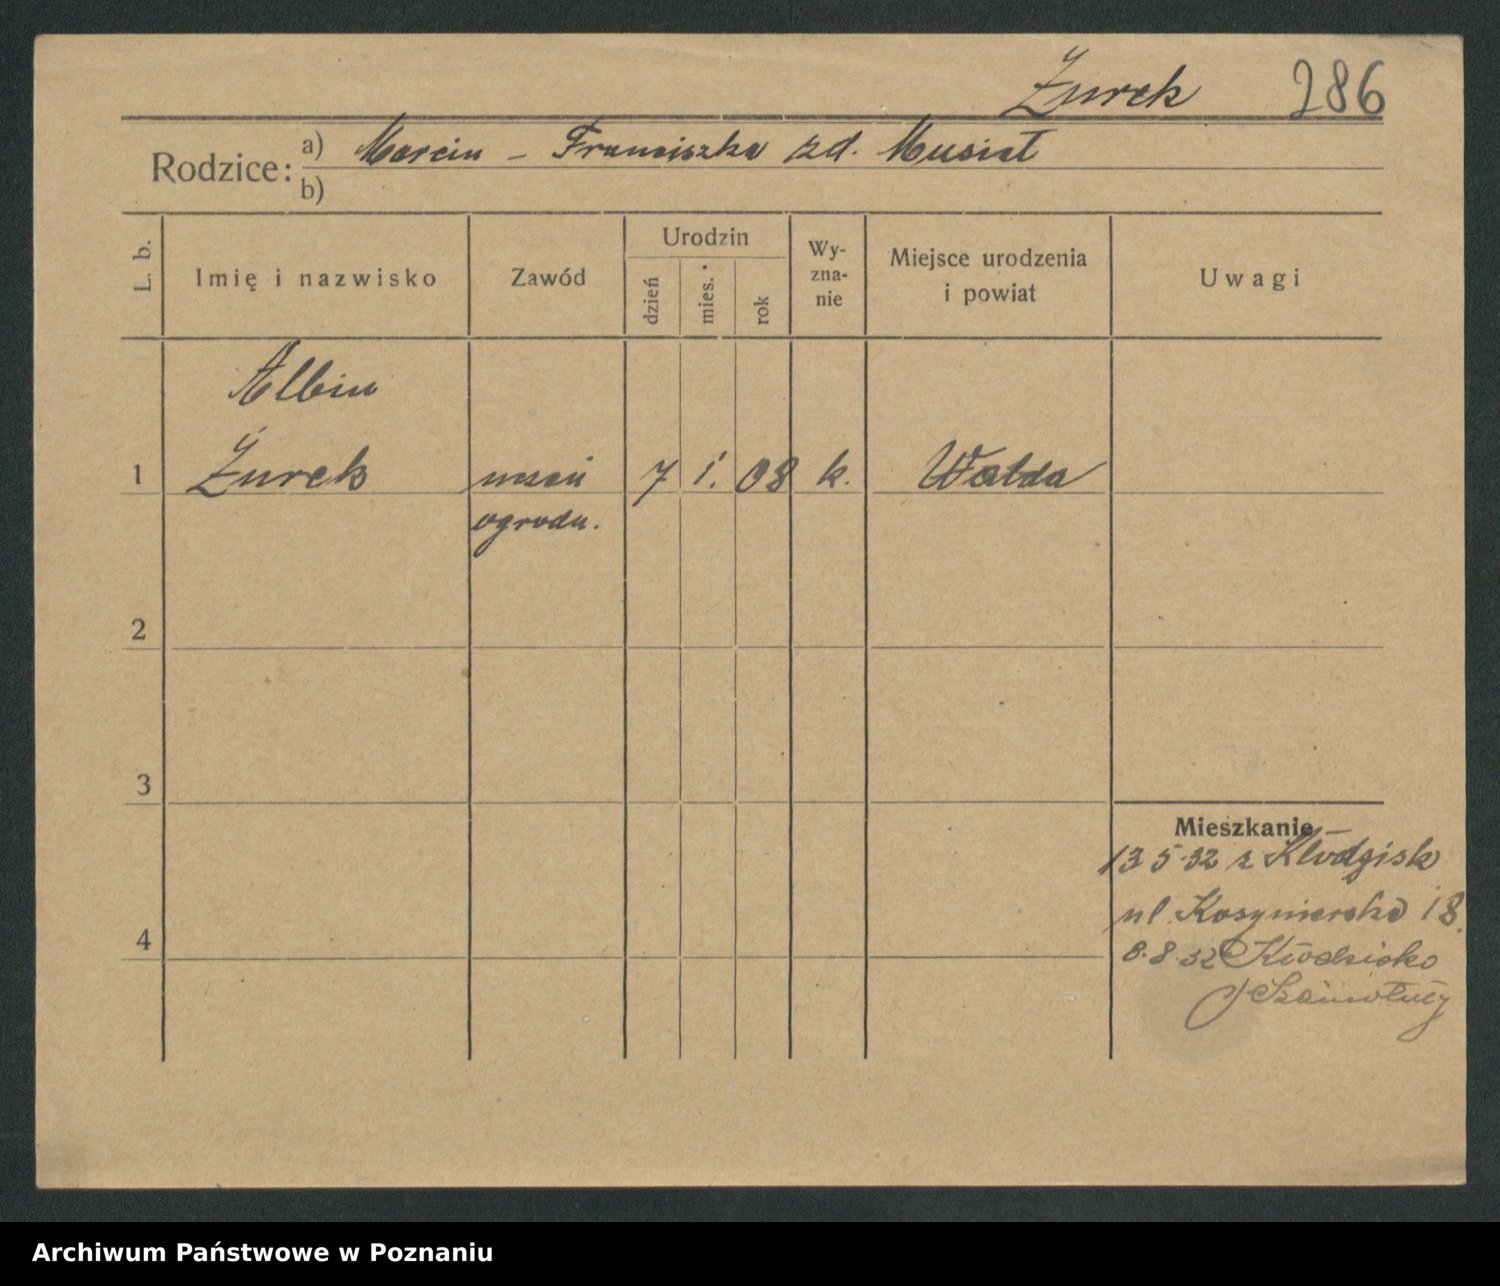 Żurek 286
Rodzice: a) Marcin – Franciszka zd. Musiał
b)
L. b. Imię i nazwisko Zawód Urodzin dzień mies. rok Wy-zna-nie Miejsce urodzenia i powiat Uwagi
Albin
1 Żurek uczeń 7 1. 08 k. Walda
ogrodn.
2
3
Mieszkanie
13 5 32 z Kłodzisk
ul. Kosynierska 18.
4
8.8.32 Kłodzisko
Szamotuły
Archiwum Państwowe w Poznaniu